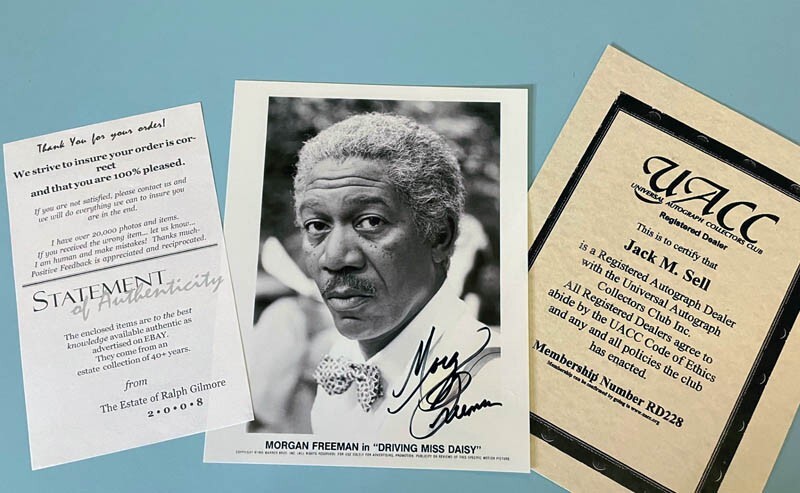 Thank You for your order!
We strive to insure your order is cor-
rect
and that you are 100% pleased.
If you are not satisfied, please contact us and
we will do everything we can to insure you
are in the end.
I have over 20,000 photos and items.
If you received the wrong item... let us know...
I am human and make mistakes! Thanks much-
Positive Feedback is appreciated and reciprocated.
STATEMENT
of Authenticity
The enclosed items are to the best
knowledge available authentic as
advertised on EBAY.
They come from an
estate collection of 40+ years.
from
The Estate of Ralph Gilmore
2•0•0•8
Morg Freeman
MORGAN FREEMAN in "DRIVING MISS DAISY"
UACC
UNIVERSAL AUTOGRAPH COLLECTORS CLUB
Registered Dealer
This is to certify that
Jack M. Sell
is a Registered Autograph Dealer
with the Universal Autograph
Collectors Club Inc.
All Registered Dealers agree to
abide by the UACC Code of Ethics
and any and all policies the club
has enacted.
Membership Number RD228
Membership can be confirmed by going to www.uacc.org